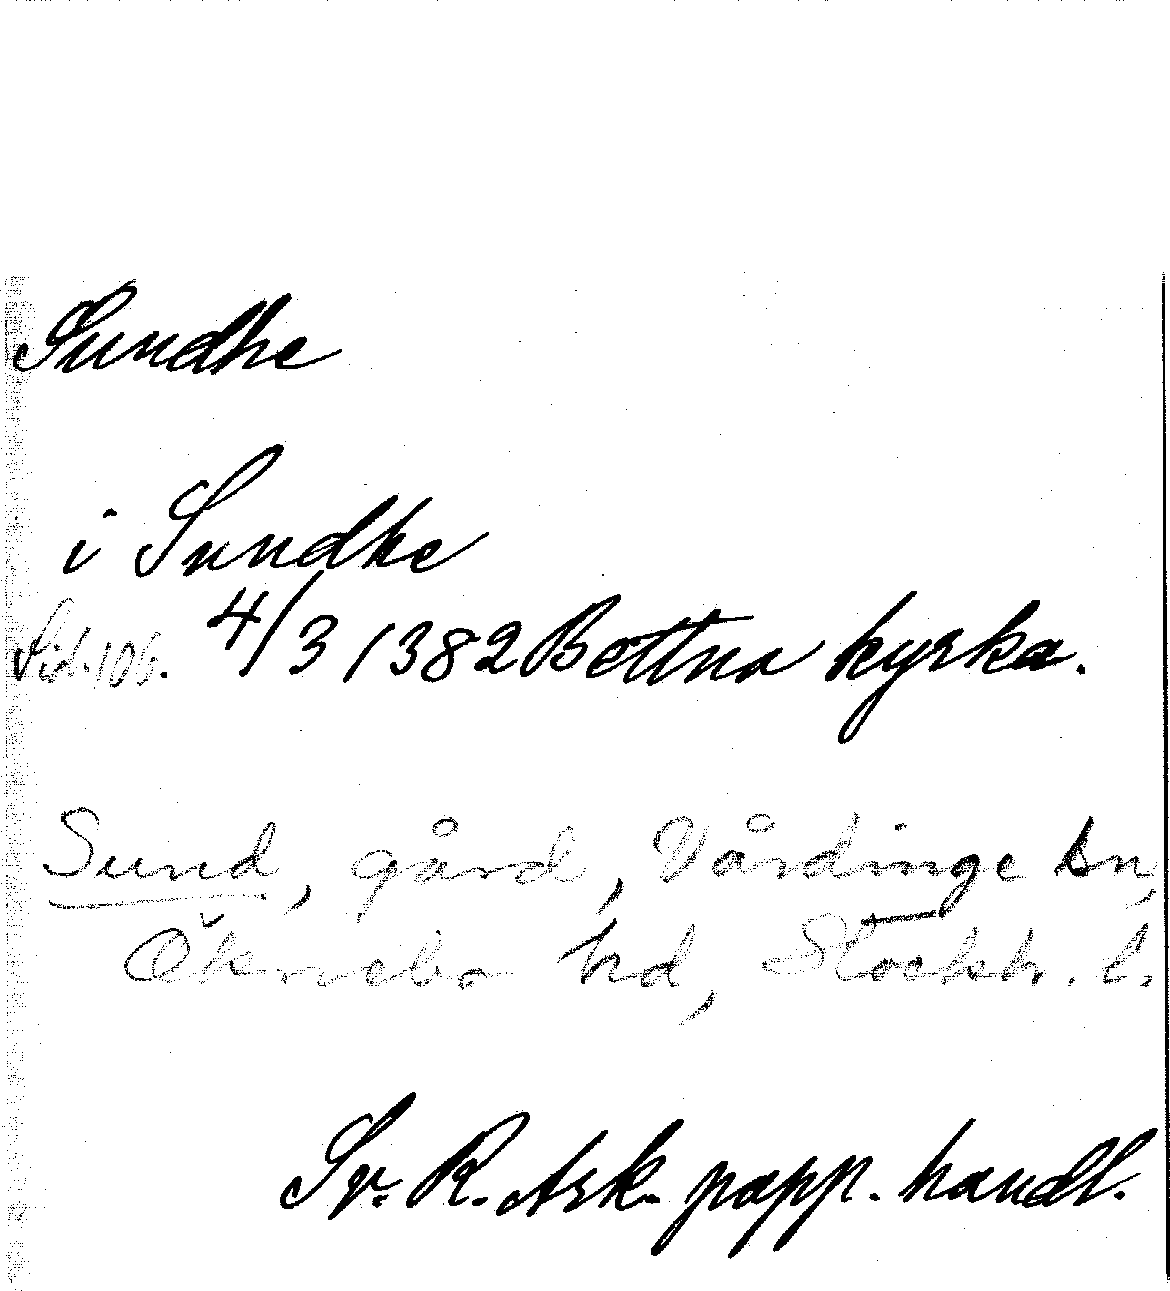 Sundhe
i Sundhe
Sid. 106. 4/3 1382 Bettna kyrka.
Sund, gård, Vårdinge sn,
Öknebo hd, Stockh. l.
Sv. R. Ark. papp. handl.